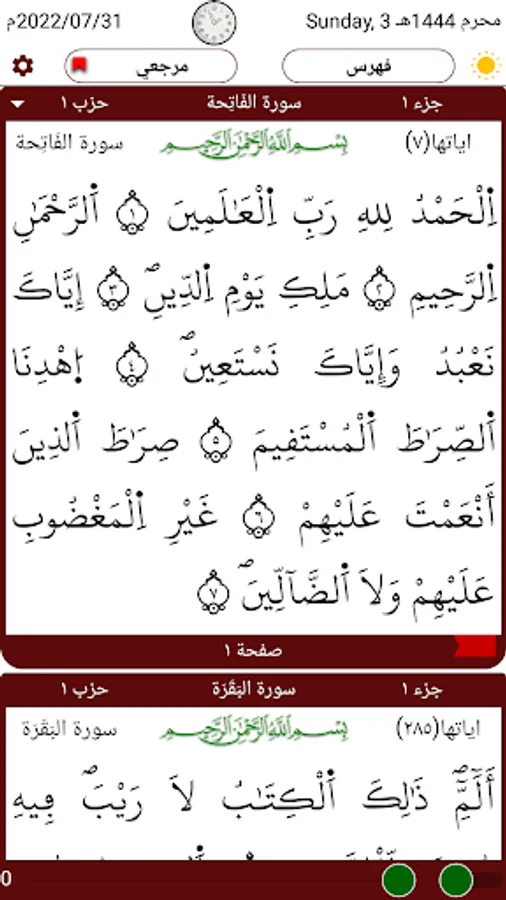 محرم 1444هـ 3 ,Sunday
2022/07/31م
فهرس
مرجعي
جزء ١
سورة الفَاتِحة
حزب ١
اياتها(٧)
بِسْمِ اللَّهِ الرَّحْمَٰنِ الرَّحِيمِ
سورة الفَاتِحة
اِ۬لْحَمْدُ لِلهِ رَبِّ اِ۬لْعَٰلَمِينَ ١ اَ۬لرَّحْمَٰنِ
اِ۬لرَّحِيمِ ٢ مَلِكِ يَوْمِ اِ۬لدِّينِۖ ٣ إِيَّاكَ
نَعْبُدُ وَإِيَّاكَ نَسْتَعِينُۖ ٤ اُ۪هْدِنَا
اَ۬لصِّرَٰطَ اَ۬لْمُسْتَفِيمَ ٥ صِرَٰطَ اَ۬لذِينَ
أَنْعَمْتَ عَلَيْهِمْ ٦ غَيْرِ اِ۬لْمَغْضُوبِ
عَلَيْهِمْ وَلَا اَ۬لضَّآلِّينَۖ ٧
صفحة ١
جزء ١
سورة البَقَرَة
حزب ١
اياتها(٢٨٥)
بِسْمِ اللَّهِ الرَّحْمَٰنِ الرَّحِيمِ
سورة البَقَرَة
أَلَٓمِّٓۖ ذَٰلِكَ اَ۬لْكِتَٰبُ لَا رَيْبَۖ فِيهِ
0